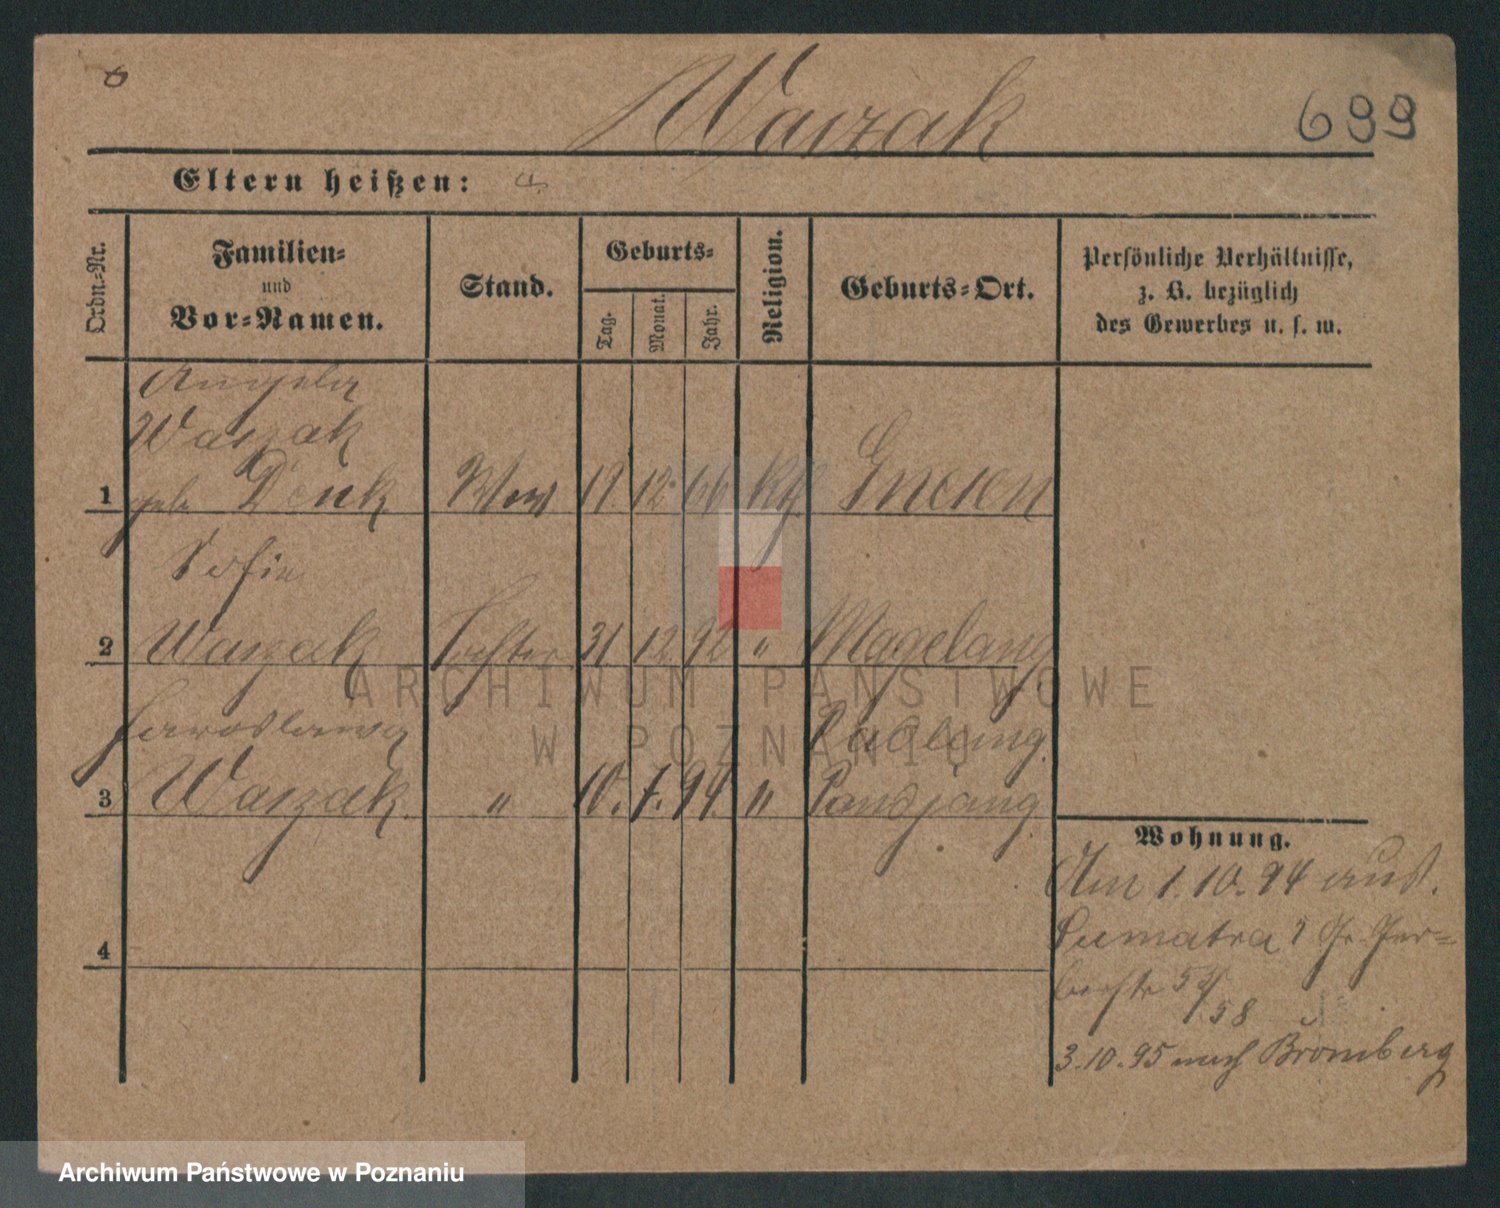 Waszak
699
Eltern heißen:
Ordn.-Nr.
Familien-
und
Vor-Namen.
Stand.
Geburts-
Tag.
Monat.
Jahr.
Religion.
Geburts-Ort.
Persönliche Verhältnisse,
z. B. bezüglich
des Gewerbes u. s. w.
Angela
Waszak
1 geb. Denk Wwe 12 66 kth Gnesen
Sofie
2 Waszak Tochter 31. 12. 92 " Magelang
Jaroslawa Padang
3 Waszak. " 10. 7. 94. " Pandjang
4
Wohnung.
Am 1.10.94 aus.
Sumatra Gr. Ger-
berstr 54/
58
3.10.95 nach Bromberg
ARCHIWUM PAŃSTWOWE
W POZNANIU
Archiwum Państwowe w Poznaniu